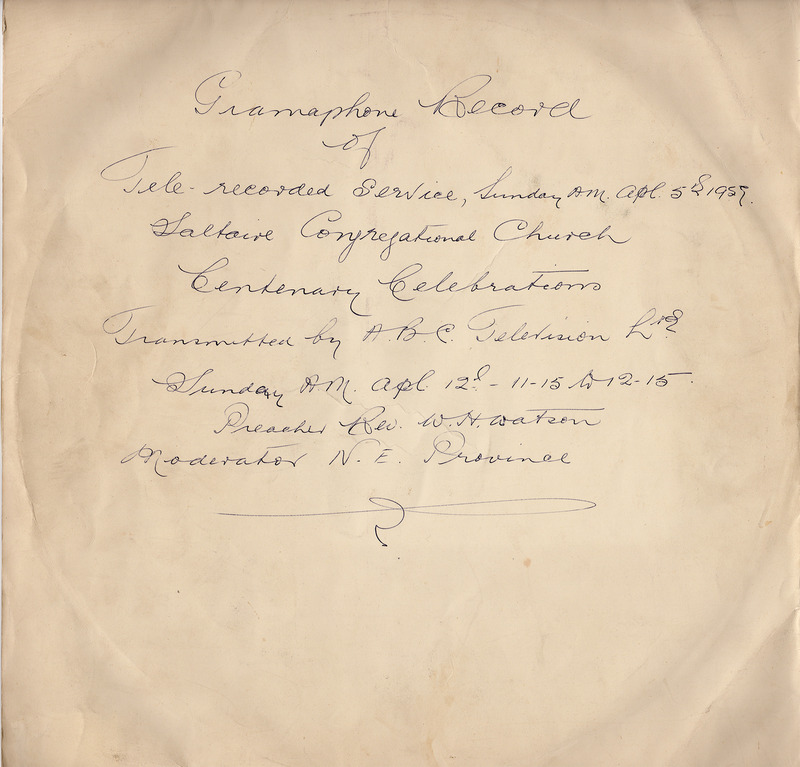 Gramaphone Record
of
Tele-recorded Service, Sunday AM. Apl. 5th 1959.
Saltaire Congregational Church
Centenary Celebrations
Transmitted by A.B.C. Television Ltd
Sunday AM. Apl. 12th - 11-15 to 12-15.
Preacher Rev. W.H. Watson
Moderator N.E. Province